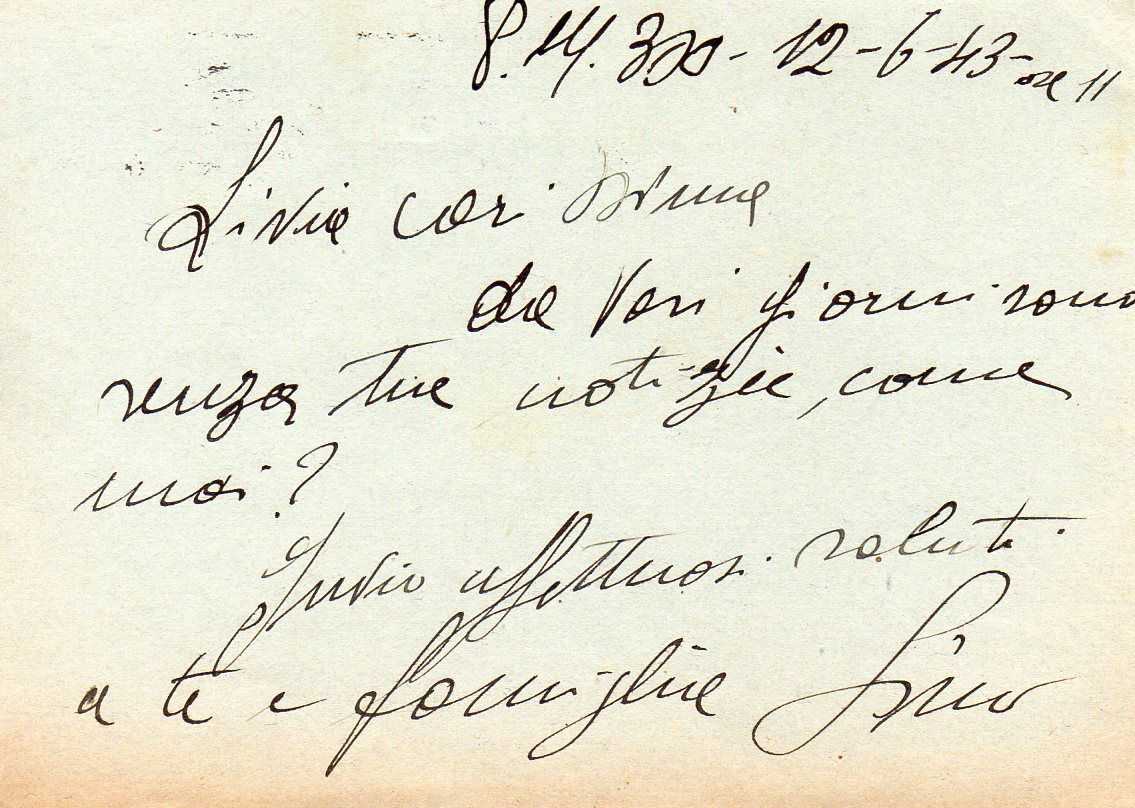 P.M. 3700 - 12-6-43- ore 11
Livia carissima
da vari giorni sono
senza tue notizie, come
mai?
Invio affettuosi saluti
a te e famiglia Lino